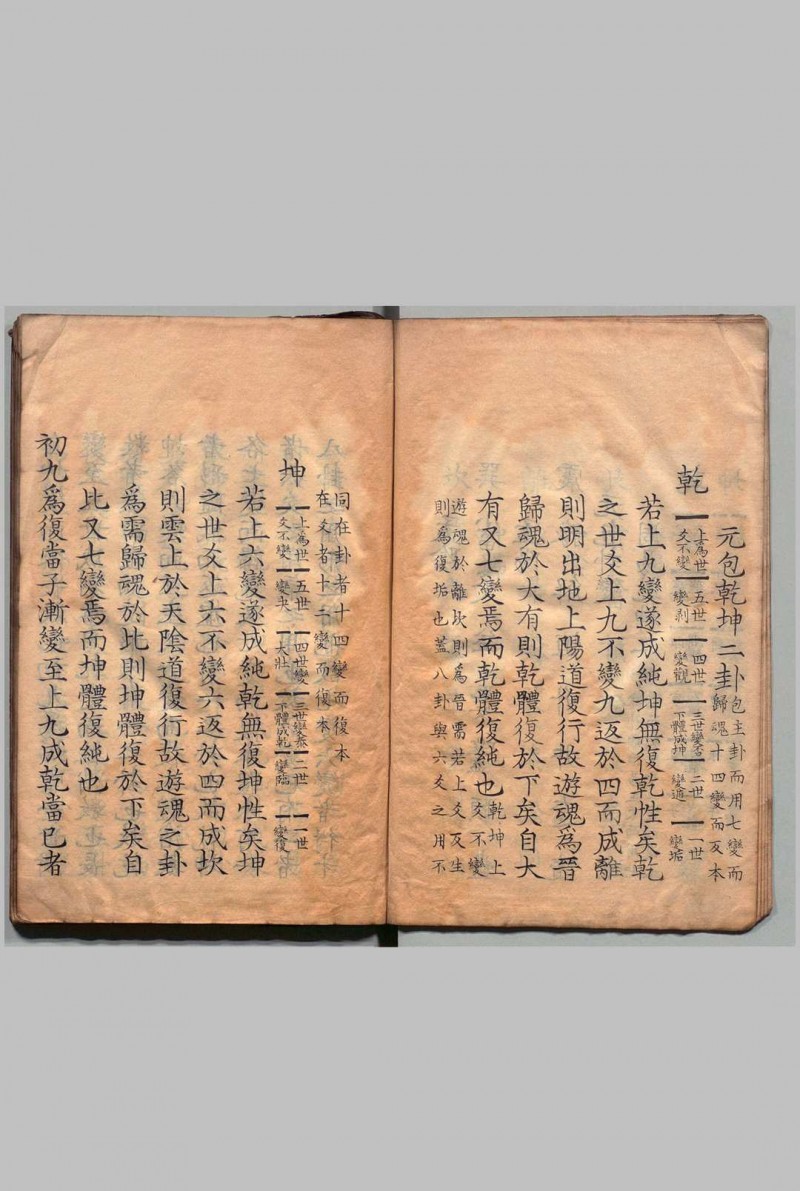 元包乾坤二卦包主卦而用七變而歸魂十四變而反本
乾 上爲世爻不變 五世變剥 四世變觀 三世變否下體成坤 二世變遯 一世變垢
若上九變遂成純坤無復乾性矣乾
之世爻上九不變九返於四而成離
則明出地上陽道復行故遊魂爲晉
歸魂於大有則乾體復於下矣自大
有又七變焉而乾體復純也乾坤上爻不變
遊魂於離坎則爲晉需若上爻反生
則爲復垢也蓋八卦與六爻之用不
同在卦者十四變而復本
在爻者十二變而復本
坤 上爲世爻不變 五世變夬 四世變大壯 三世變泰下體成乾 二世變臨 一世變復
若上六變遂成純乾無復坤性矣坤
之世爻上六不變六返於四而成坎
則雲上於天陰道復行故遊魂之卦
爲需歸魂於比則坤體復於下矣自
比又七變焉而坤體復純也
初九爲復當子漸變至上九成乾當巳者